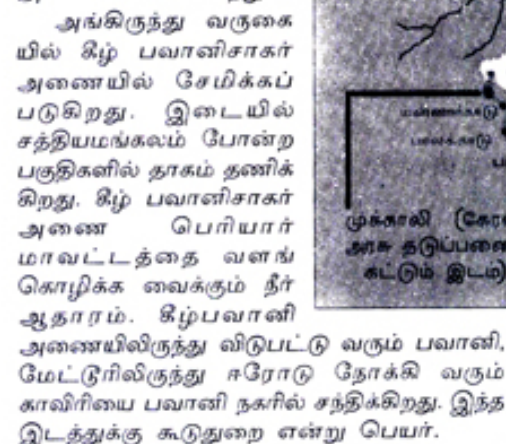 அங்கிருந்து வருகை
யில் கீழ் பவானிசாகர்
அணையில் சேமிக்கப்
படுகிறது. இடையில்
சத்தியமங்கலம் போன்ற
பகுதிகளில் தாகம் தணிக்
கிறது. கீழ் பவானிசாகர்
அணை பெரியார்
மாவட்டத்தை வளங்
கொழிக்க வைக்கும் நீர்
ஆதாரம். கீழ்பவானி
அணையிலிருந்து விடுபட்டு வரும் பவானி,
மேட்டூரிலிருந்து ஈரோடு நோக்கி வரும்
காவிரியை பவானி நகரில் சந்திக்கிறது. இந்த
இடத்துக்கு கூடுதுறை என்று பெயர்.
மண்ணார்காடு
பாலக்காடு
முக்காலி (கேரள
அரசு தடுப்பணை
கட்டும் இடம்)